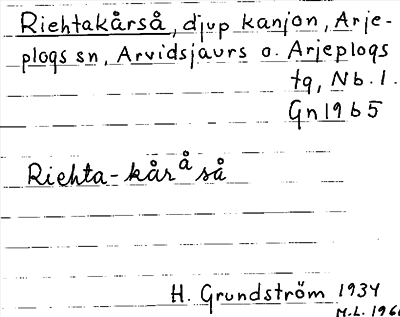 Riehtakårså, djup kanjon, Arje-
plogs sn, Arvidsjaurs o. Arjeplogs
tg, Nb. l.
Gn 1965
Riehta-kåråså
H. Grundström 1934